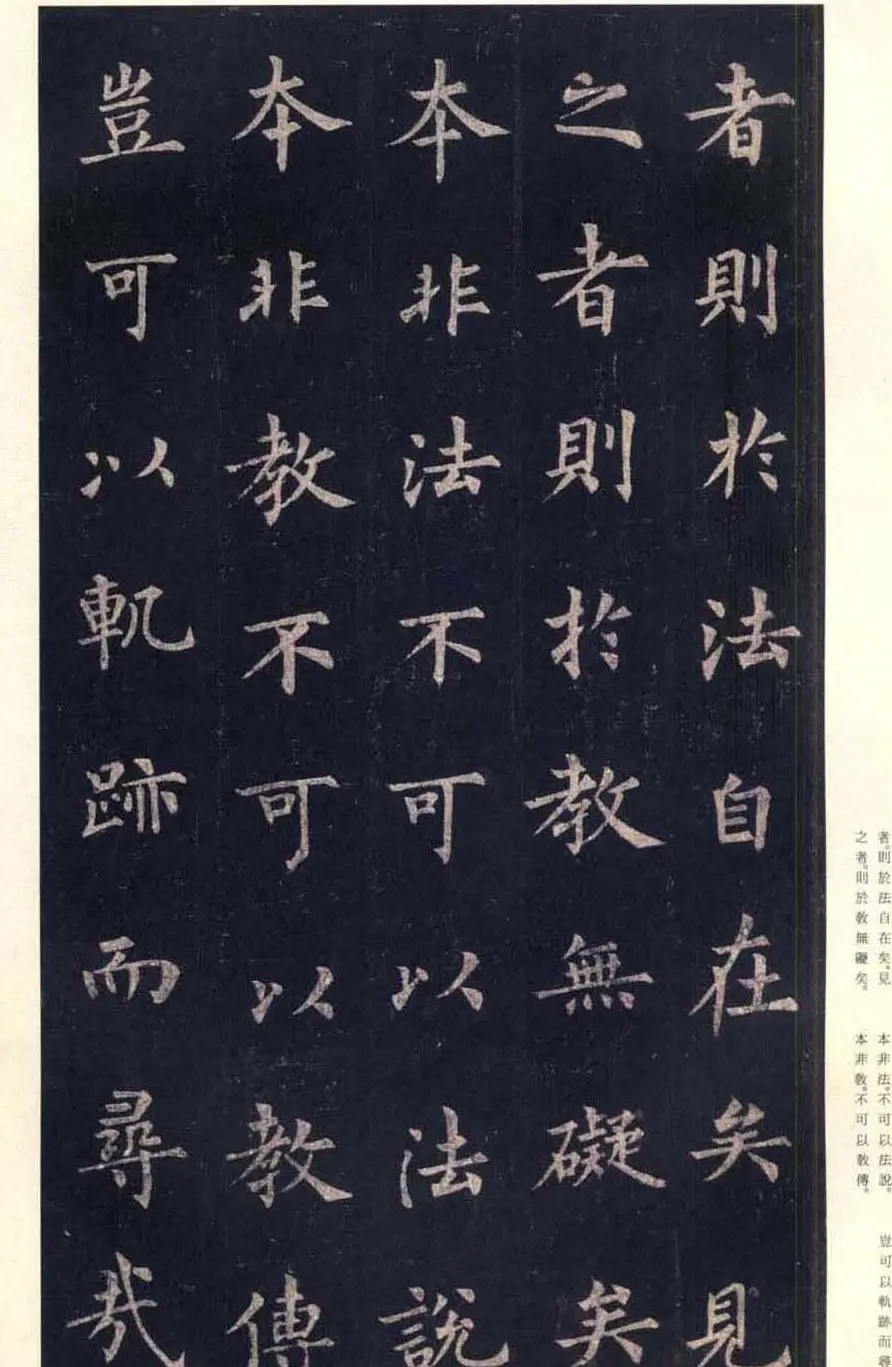 者則於法自在矣見
之者則於教無礙矣
本非法不可以法說
本非教不可以教傳
豈可以軌跡而尋哉
者。則於法自在矣。見
之者。則於教無礙矣。
本非法。不可以法說。
本非教。不可以教傳。
豈可以軌跡而尋